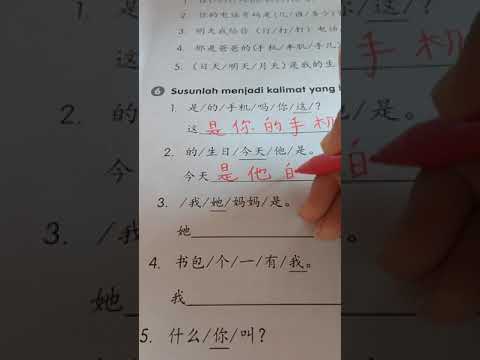 2. 你的电话号码是
3. 明天我给你 电话
4. 那是爸爸的(手机
5. (日天/明天/月天)是我的生
6 Susunlah menjadi kalimat yang
1. 是/的/手机/吗/你/这/?
这 是你的手机
2. 的/生日/今天/他/是。
今天 是他
3. /我/她/妈妈/是。
她
4. 书包/个/一/有/我。
我
5. 什么/你/叫?